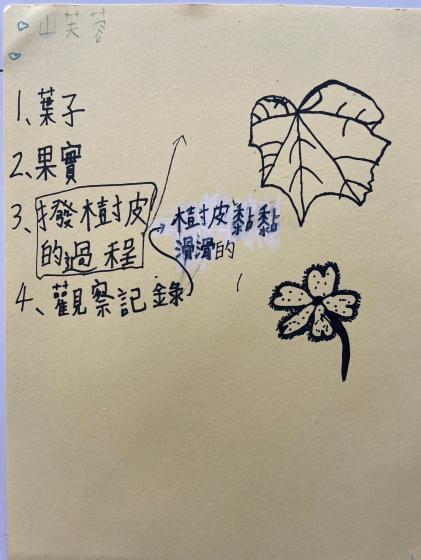 山芙蓉
1、葉子
2、果實
3、撥樹皮
的過程
樹皮黏黏
滑滑的
4、觀察記錄